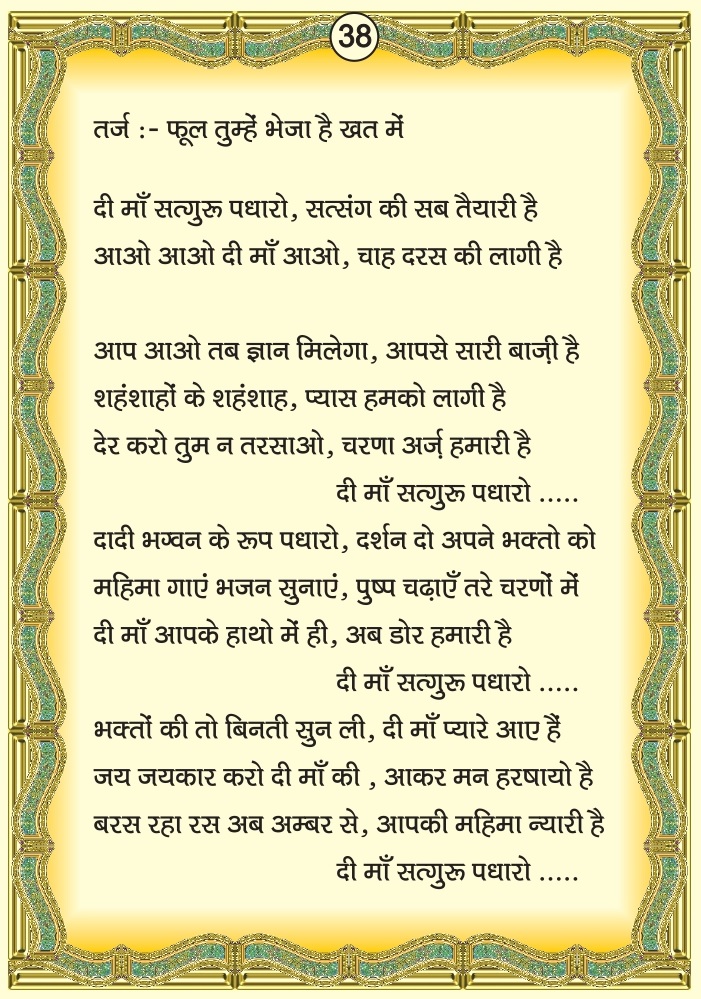 38
तर्ज :- फूल तुम्हें भेजा है खत में
दी माँ सत्गुरू पधारो, सत्संग की सब तैयारी है
आओ आओ दी माँ आओ, चाह दरस की लागी है
आप आओ तब ज्ञान मिलेगा, आपसे सारी बाज़ी है
शहंशाहों के शहंशाह, प्यास हमको लागी है
देर करो तुम न तरसाओ, चरणा अर्ज़ हमारी है
दी माँ सत्गुरू पधारो .....
दादी भग्वन के रूप पधारो, दर्शन दो अपने भक्तो को
महिमा गाएं भजन सुनाएं, पुष्प चढ़ाएँ तरे चरणों में
दी माँ आपके हाथो में ही, अब डोर हमारी है
दी माँ सत्गुरू पधारो .....
भक्तों की तो बिनती सुन ली, दी माँ प्यारे आए हैं
जय जयकार करो दी माँ की , आकर मन हरषायो है
बरस रहा रस अब अम्बर से, आपकी महिमा न्यारी है
दी माँ सत्गुरू पधारो .....